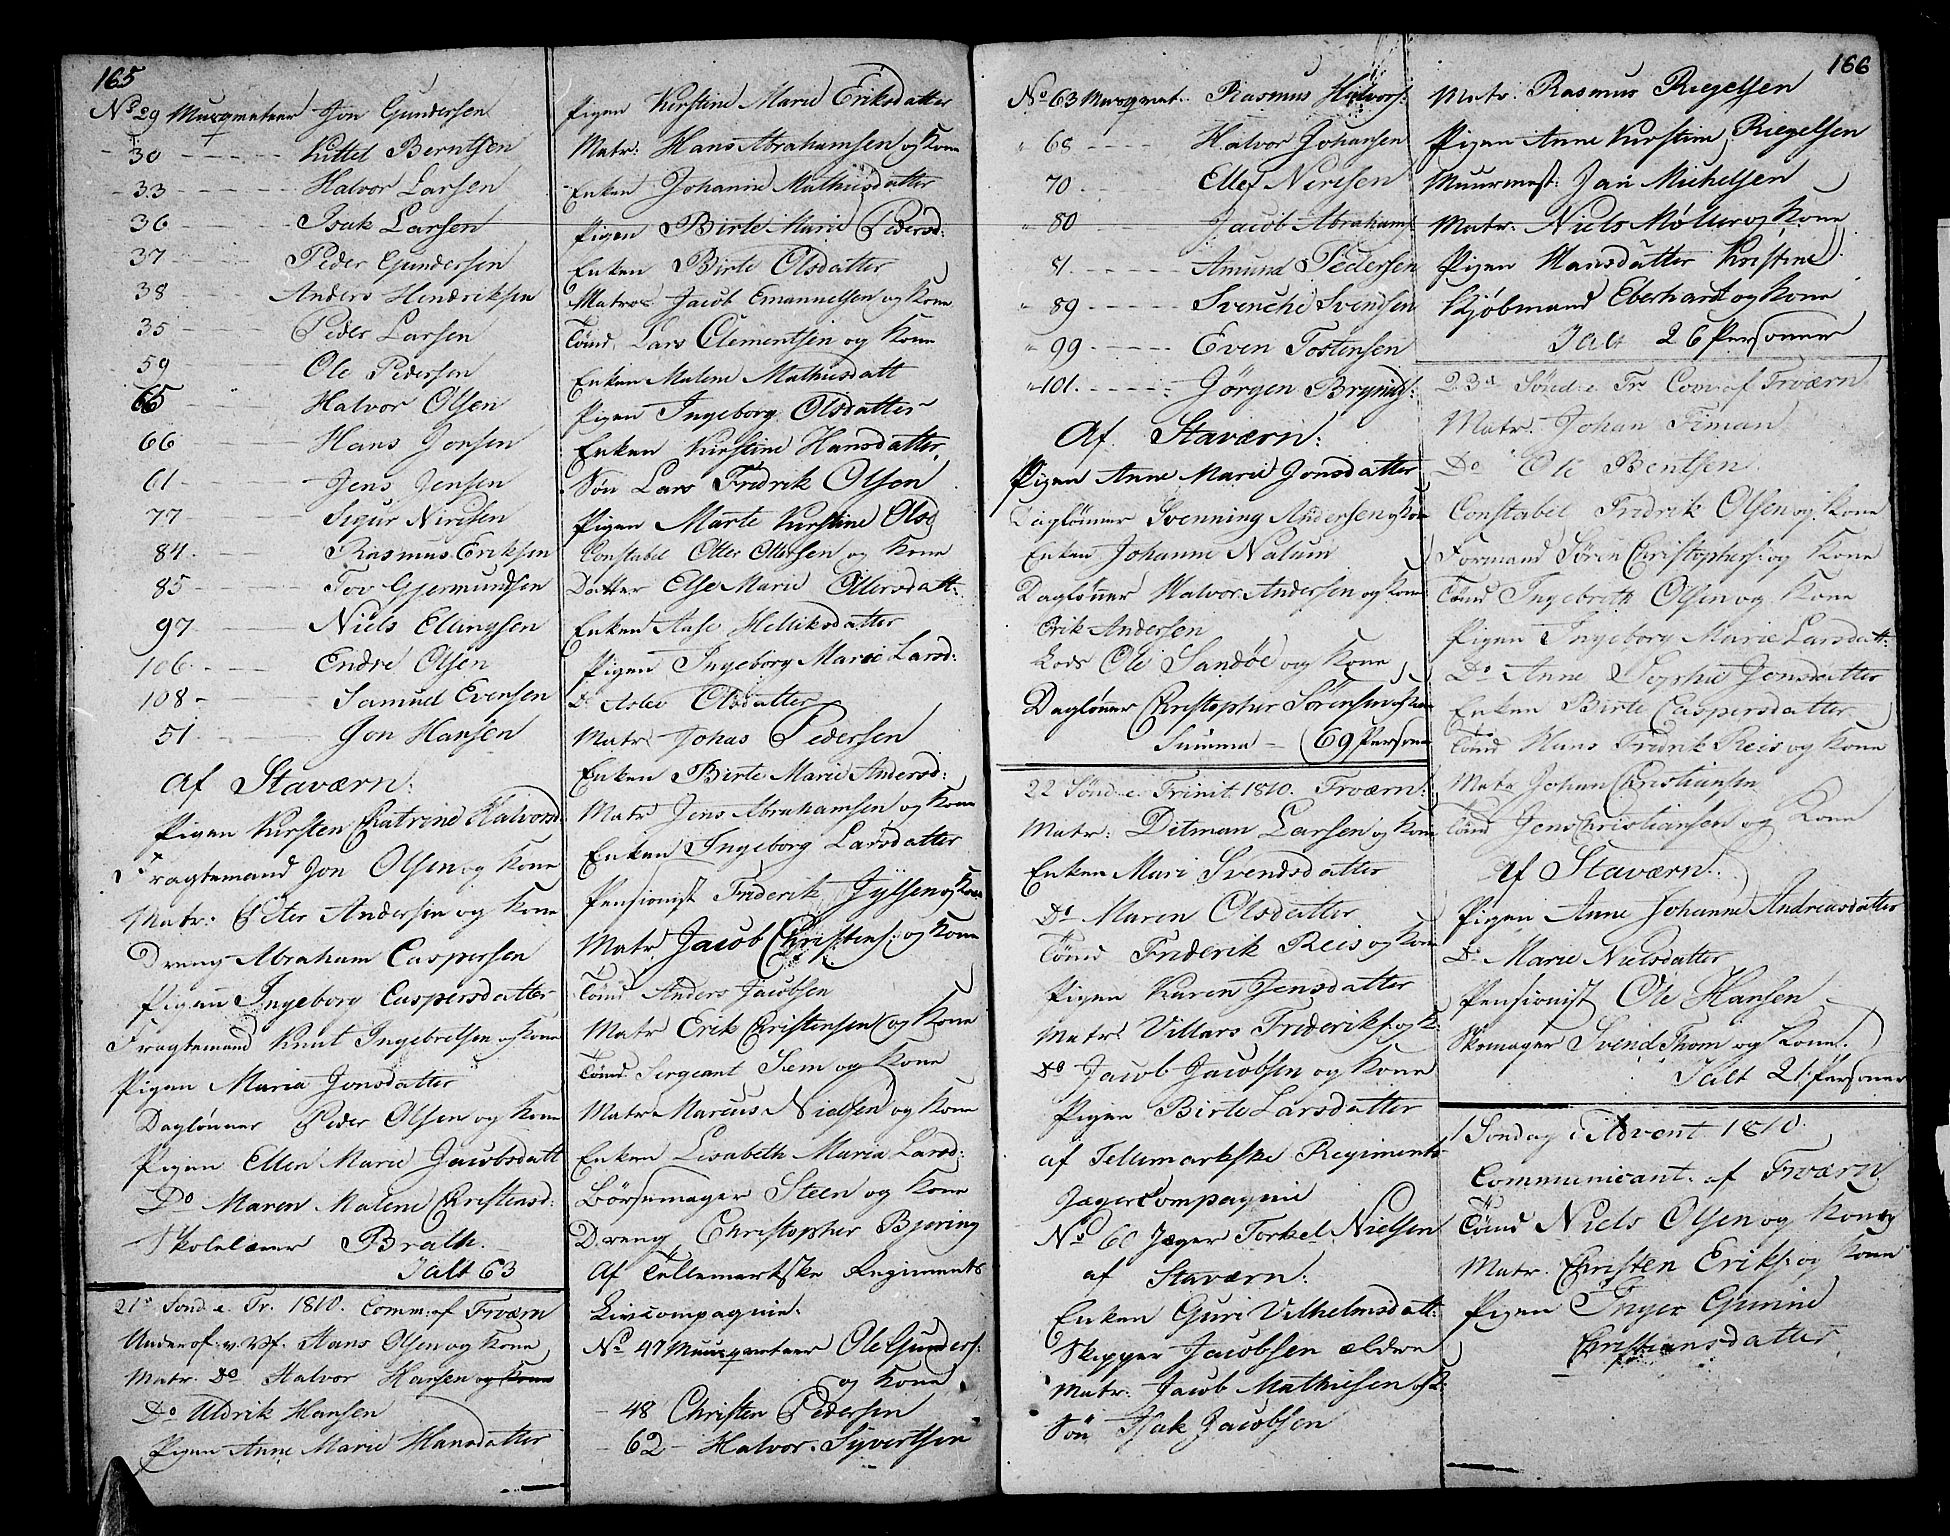 165
No 29 Musqueteer Jon Gundersen
30 Kittel Berntsen
33 Halvor Larsen
36 Isak Larsen
37 Peder Gundersen
38 Anders Hendriksen
35 Peder Larsen
59 Ole Pedersen
65 Halvor Olsen
66 Hans Jonsen
61 Jens Jensen
77 Sigur Nirisen
84 Rasmus Eriksen
85 Tov Gjermundsen
97 Niels Ellingsen
106 Endre Olsen
108 Samuel Evensen
51 Jon Hansen
Af Staværn:
Pigen Kirsten Catrine Halvorsd
Fragtemand Jon Olsen og Kone
Matr: Peter Andersen og Kone
Dreng Abraham Caspersen
Pigen Ingeborg Caspersdatter
Fragtemand Knut Ingebretsen og Kone
Pigen Maria Jonsdatter
Daglønner Peder Olsen og Kone
Pigen Ellen Marie Jacobsdatt
Do Maren Malene Christensd:
Skolelærer Brath.
Ialt 63
21de Sønd. e. Tr. 1810. Comm: af Frværn
Underof. v. Vf. Hans Olsen og Kone
Matr. Do Halvor Hansen og Kone
Do Uldrik Hansen
Pigen Anne Marie Hansdatter
Pigen Kirstine Marie Eriksdatter
Matr: Hans Abrahamsen og Kone
Enken Johanne Mathisdatter
Pigen Birte Marie Pedersd:
Enken Birte Olsdatter
Matros Jacob Emanuelsen og Kone
Tømd. Lars Clementsen og Kone
Enken Malene Mathisdatt
Pigen Ingeborg Olsdatter
Enken Kirstine Hansdatter,
Søn Lars Fredrik Olsen
Pigen Marte Kirstine Olsd
Constabel Otter Ottersen og Kone
Datter Else Marie Ottersdatt:
Enken Aase Helliksdatter
Pigen Ingeborg Marie Larsd:
Do Aslev Olsdatter
Matr: Johas Pedersen
Enken Birte Marie Andersd:
Matr Jens Abrahamsen og Kone
Enken Ingeborg Larsdatter
Pensionist Friderik Jyllsen og Kone
Matr. Jacob Christens: og Kone
Tømd Anders Jacobsen
Matr Erik Christensen og Kone
Tømd. Sergeant Siem og Kone
Matr. Marcus Nielsen og Kone
Enken Lisabeth Maria Larsd:
Børsemager Steen og Kone
Dreng Christopher Bjering
Af Tellemarkske Regiments
Livcompagnie.
No 47 Musqueteer Ole Gunders:
og Kone
48 Christen Pedersen
62 Halvor Syvertsen
No 63 Musquet. Rasmus Halvors:
68 Halvor Johansen
70 Ellef Nirisen
80 Jacob Abrahams
81 Amund Pedersen
89 Svenche Svendsen
99 Even Tostensen
101 Jørgen Bryniels:
Af Staværn:
Pigen Anne Marie Jonsdatter
Daglønner Svenning Andersen og Kone
Enken Johanne Nalum
Dagløner Halvor Andersen og Kone
Erik Andersen
Lods Ole Sandøe og Kone
Dagløner Christopher Sørensen og Kone
Summa - 69 Persone
22 Sønd. e. Trinit. 1810. Frværn:
Matr: Ditman Larsen og Kone
Enken Mari Svendsdatter
Do Maren Olsdatter
Tømd Friderik Reis og Kone
Pigen Karen Jensdatter
Matr: Villars Frideriks: og K:
Do Jacob Jacobsen og Kone
Pigen Birte Larsdatter
af Tellemarkske Regiments
Jæger Compagnie
No 60 Jæger Torkel Nielsen
af Staværn:
Enken Guri Vilhelmsdatt:
Skipper Jacobsen ældre
Matr: Jacob Mathiesen og K:
Søn Isak Jacobsen
166
Matr. Rasmus Riegelsen
Pigen Anne Kirstine Riegelsen
Muurmest: Jan Michelsen
Matr: Niels Møller og Kone
Pigen Hansdatter Kirstine
Kjøbmand Eberhardt og Kone
Ialt 26 Personer
23de Sønd. e. Tr. Com: af Frværn
Matr. Johan Timan
Do Ole Bentsen
Constabel Fredrik Olsen og Kone
Formand Søren Christophers: og Kone
Tømd Ingebreth Olsen og Kone
Pigen Ingeborg Marie Larsdatt:
Do Anne Sophie Jensdatter
Enken Birte Caspersdatter
Tømd Hans Fredrik Reis og Kone
Matr Johan Christiansen
Tømd Jens Christiansen og Kone
Af Staværn.
Pigen Anne Johanne Andreasdatter
Do Marie Nielsdatter
Pensionist Ole Hansen
Skomager Svend Thom og Kone.
Ialt 21 Personer
1 Søndag i Advent 1810.
Communicant. af Frværn
Tømd Niels Olsen og Kone
Matr. Christen Eriks: og Kone
Pigen Inger Gurine
Christiansdatter